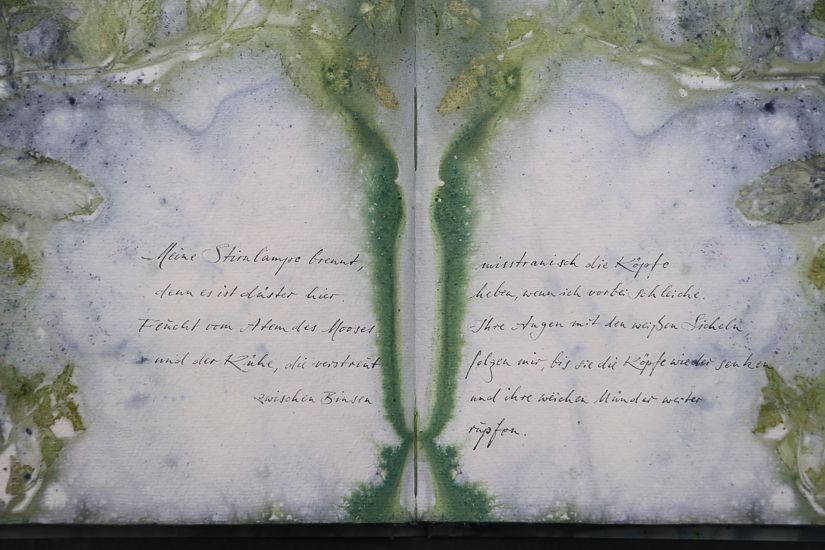 Meine Stirnlampe brennt,
denn es ist düster hier.
Feucht vom Atem des Mooses
und der Kühe, die verstreut
zwischen Binsen
misstrauisch die Köpfe
heben, wenn ich vorbei schleiche.
Ihre Augen mit den weißen Sicheln
folgen mir, bis sie die Köpfe wieder senken
und ihre weichen Münder weiter
rupfen.